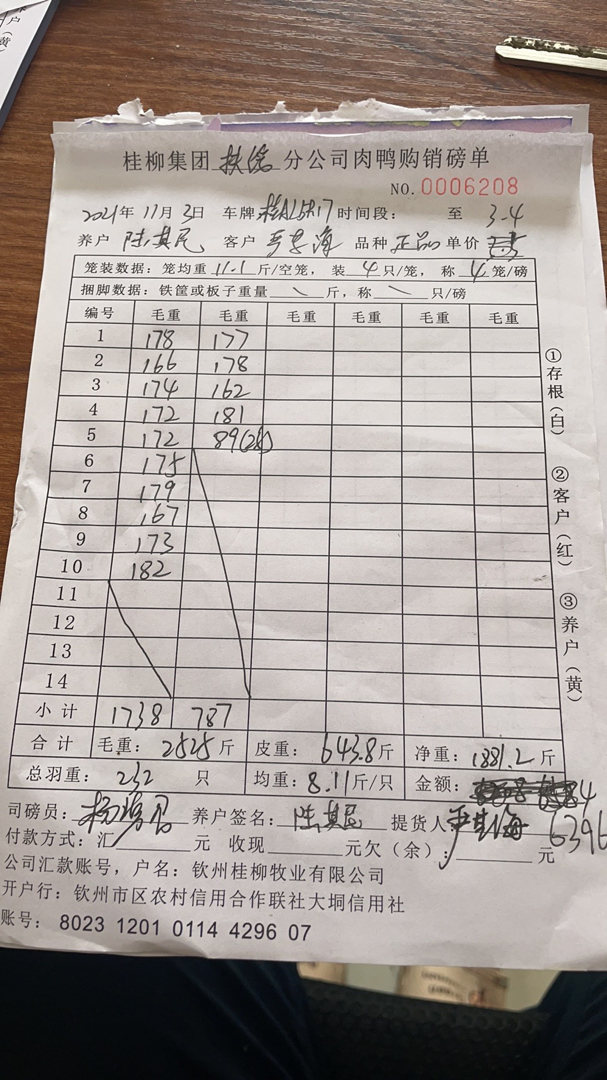 桂柳集团扶绥分公司肉鸭购销磅单
NO.0006208
2021年11月3日 车牌 时间段: 至 3-4
养户 陆其民 客户 品种 正品 单价
笼装数据: 笼均重 11.1 斤/空笼, 装 4 只/笼, 称 4 笼/磅
捆脚数据: 铁筐或板子重量 \ 斤, 称 \ 只/磅
编号 毛重 毛重 毛重 毛重 毛重 毛重
1 178 177
2 166 178
3 174 162
4 172 181
5 172 89(2笼)
6 175
7 179
8 167
9 173
10 182
11
12
13
14
小计 1738 787
合计 毛重: 2525 斤 皮重: 643.8 斤 净重: 1881.2 斤
总羽重: 232 只 均重: 8.11 斤/只 金额:
司磅员: 养户签名: 陆其民 提货人 6396
付款方式: 汇 元 收现 元欠(余): 元
公司汇款账号, 户名: 钦州桂柳牧业有限公司
开户行: 钦州市区农村信用合作联社大垌信用社
账号: 8023 1201 0114 4296 07
①存根(白) ②客户(红) ③养户(黄)